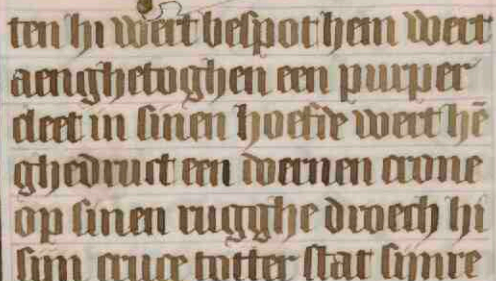 ten hi wert bespot hem wert
aenghetoghen een purper
cleet in sinen hoefde wert hē
ghedruct een dornen crone
op sinen rugghe droech hi
sijn cruce totter stat sijnre